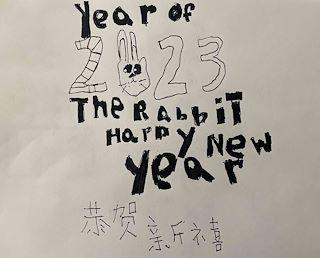 Year of
2023
The RabbiT
Happy New
Year
恭贺新禧